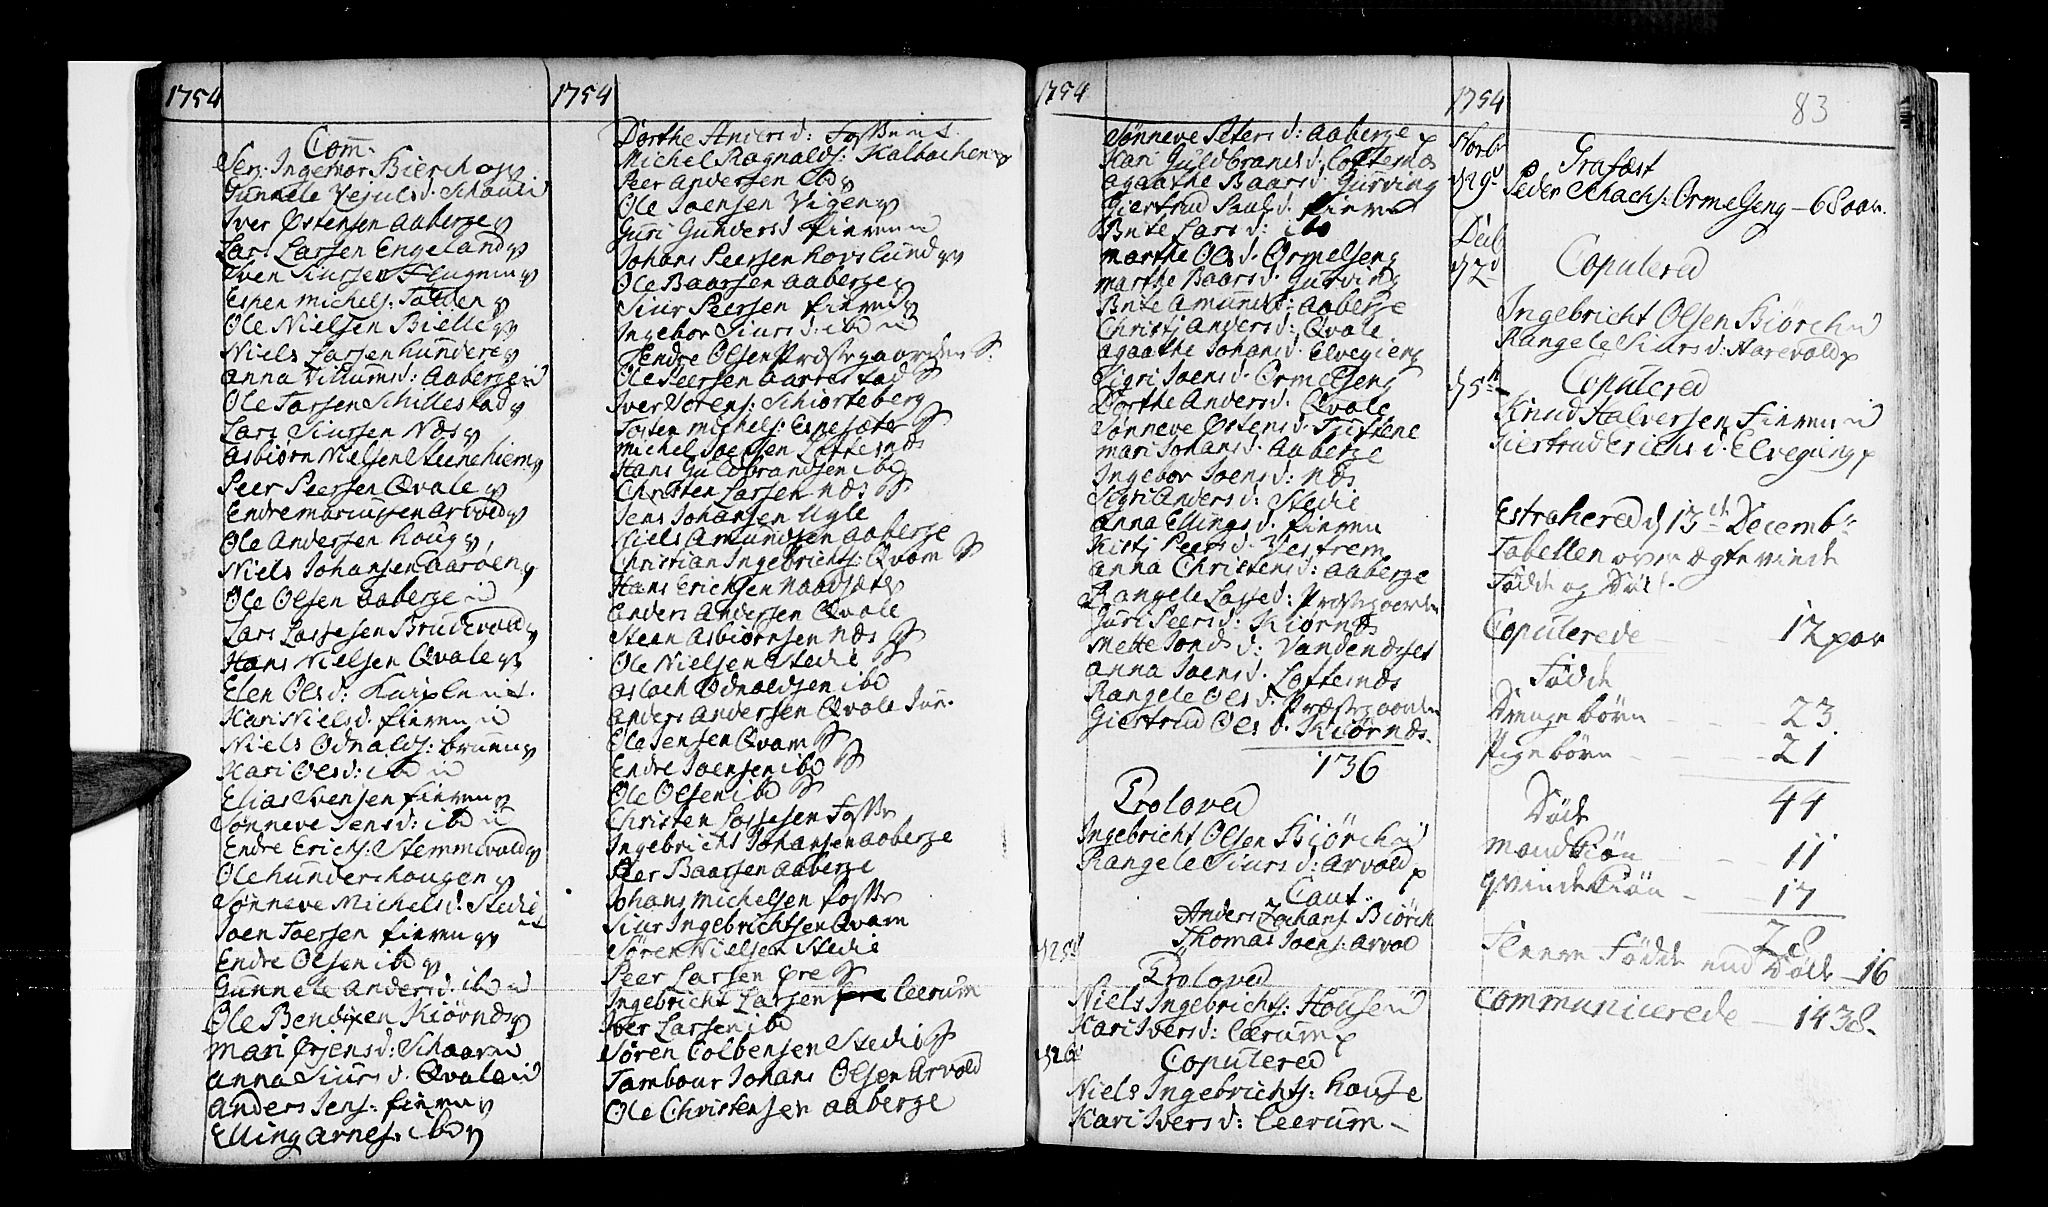 1754
Com̄.
Serj: Ingemor Biørch
Gunnele Vejulsd: Schauli
Iver Østensen Aaberge
Lars Larsen Engeland
Sven Siursen Flugem
Espen Michels: Talden
Ole Nielsen Bielle
Niels Larsen Hundere
Anna Villumsd: Aaberge
Ole Larsen Schillestad
Lars Siursen Næs
Asbiørn Nielsen Steenehiem
Peer Peersen Qvale
Endre Arvold
Ole Andersen Houg
Niels Johansen Aarøen
Ole Olsen Aaberge
Lars Lassesen Brudevold
Hans Nielsen Qvale
Elen Olsd:
Kari Nielsd: Fieren
Niels Odnalds: bruun
Kari Olsd: ibd
Elias Svensen Fieren
Sønneve Jensd: ibd
Endre Erichs: Stemmevold
Ole hunderhougen
Sønneve Michelsd: Stedie
Joen Joersen Fieren
Endre Olsen ibd
Gunnele Andersd: ibd
Ole Bendixen Kiørnæs
Mari Ørjensd: Schaar
Anna Siursd: Qvale
Anders Jens: Fieren
Elling Arnes: ibd
1754
Dorthe Andersd: Foss
Michel Ragnalds: Kalbachen
Peer Andersen ibd
Ole Joensen Vigen
Guri Gundersd Fieren
Johans Peersen Hovslund
Ole Baarsen Aaberge
Siur Peersen Fieren
Ingebor Siursd: ibd
Endre Olsen Præstegaarden
Ole Peersen Aarrestad
Iver Sørens: Schiørteberg
Tosten Michels: Esnesæter
Michel Joensen Loftesnæs
Hans Guldbrandsen ibd
Christen Larsen Næs
Jens Johansen Ugle
Niels Amundsen Aaberge
Christian Ingebrichts: Qvam
Hans Erichsen Nabdsæter
Anders Andersen Qvale
Steen Asbiørnsen Næs
Ole Nielsen Stedie
Aslach Odnaldsen ibd
Anders Andersen Qvale Jun.
Ole Jensen Qvam
Endre Joensen ibd
Ole Olsen ibd
Christen Lassesen Foss
Ingebricht Johansen Aaberge
Peer Baarsen Aaberge
Johans Michelsen Foss
Siur Ingebrichtsen Qvam
Søren Nielsen Stedie
Peer Larsen Øre
Ingebricht Larsen Leerum
Iver Larsen ibd
Søren Colbensen Stedie
Tambour Johans Olsen Arvold
Ole Christensen Aaberge
1754
Sønneve Petersd: Aaberge
Kari Guldbrandsd: Loftesnæs
Agaathe Baarsd: Gurving
Giertrud Paulsd: Fieren
Brite Larsd: ibd
Marthe Olsd. Ormelseng
Marthe Baarsd: Gurving
Brite Amundsd: Aaberge
Christj Andersd: Qvale
Agaathe Johansd: Elvegieng
Sigri Joensd. Ormelseng
Dorthe Andersd. Qvale
Sønneve Østensd.
Mari Johansd: Aaberge
Ingebor Joensd: Næs
Sigri Andersd: Stedie
Anna Ellingsd. Fieren
Kistj Peersd. Vestrem
Anna Christensd: Aaberge
Rangele Lassed: Præstegaarden
Guri Peersd: Kiørnæs
Mette Jonsd:
Anna Joensd. Loftesnæs
Rangele Olsd. Præstegaarden
Giertrud Olsd. Kiørnæs
136
Troloved
Ingebricht Olsen Biørch
Rangele Siursd: Arvold
Caut:
Anders Zachars Biørch
Thomas Joens: Arvol
d 25d
Troloved
Niels Ingebrichts: Housen
Kari Iversd: Leerum
d 26d
Copulered
Niels Ingebrichts: house
Kari Iversd: Leerum
1754
83
Novbr
d 29d
Grafæst
Peder Schachs: Ormelseng — 68 aar.
Decb
d 2d
Copulered
Ingebricht Olsen Biørch
Rangele Siursd: Harevold
d 5t
Copulered
Knud Halversen Fieren
Giertrud Erichsd. Elvegieng
Estrahered d 13th Decembr
Tabellen over ægteviede
Fødde og Døde
Copulerede — 12 par
Fødde
Drengebørn — 23
Pigebørn — 21
44
Døde
Mandkiøn — 11
Qvindekiøn — 17
28
Fleere Fødde end Døde — 16
Communicerede — 1438